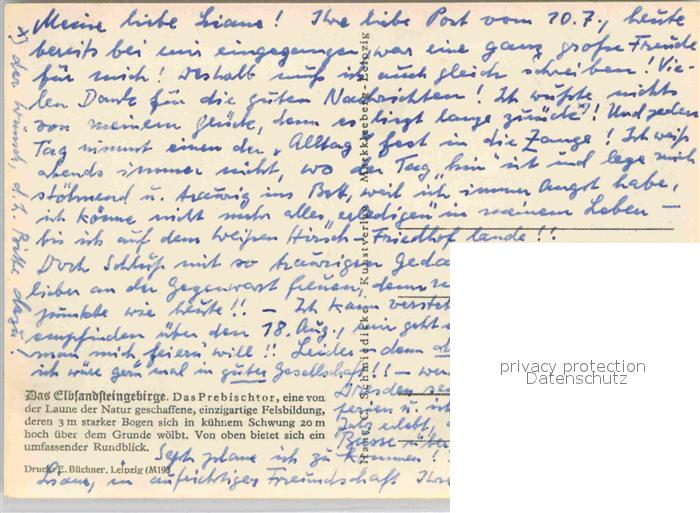 Meine liebe Liane! Ihre liebe Post vom 10.7., heute
bereits bei uns eingegangen, war eine ganz große Freude
für mich! Deshalb muß ich auch gleich schreiben! Vie-
len Dank für die guten Nachrichten! Ich wußte nichts
von meinem Glück, denn es liegt lange zurück x)! Und jeden
Tag nimmt einen der „Alltag" fest in die Zange! Ich weiß
abends immer nicht, wo der Tag „hin" ist und lege mich
stöhnend u. traurig ins Bett, weil ich immer Angst habe,
ich könne nicht mehr alles „erledigen" in meinem Leben –
bis ich auf dem weißen Hirsch-Friedhof lande!!
Doch Schluß mit so traurigen Geda
lieber an der Gegenwart freuen, denn
punkte wie heute!! – Ich kann versteh
empfinden über den 18. Aug., mir geht
man mich feiern will!! Leider, denn
ich wäre gern mal in guter Gesellschaft!! – wen
Dresden
ferien u. ich
erlebt,
Busse
Sept. plane ich zu kommen!
Liane, in aufrichtiger Freundschaft Ihre
x) der Wunsch, d. 1. Rolle dazu!
Das Elbsandsteingebirge. Das Prebischtor, eine von
der Laune der Natur geschaffene, einzigartige Felsbildung,
deren 3 m starker Bogen sich in kühnem Schwung 20 m
hoch über dem Grunde wölbt. Von oben bietet sich ein
umfassender Rundblick.
Druck: E. Büchner, Leipzig (M198
Hans C. Schmiedicke · Kunstverlag · Markkleeberg-Leipzig
privacy protection
Datenschutz